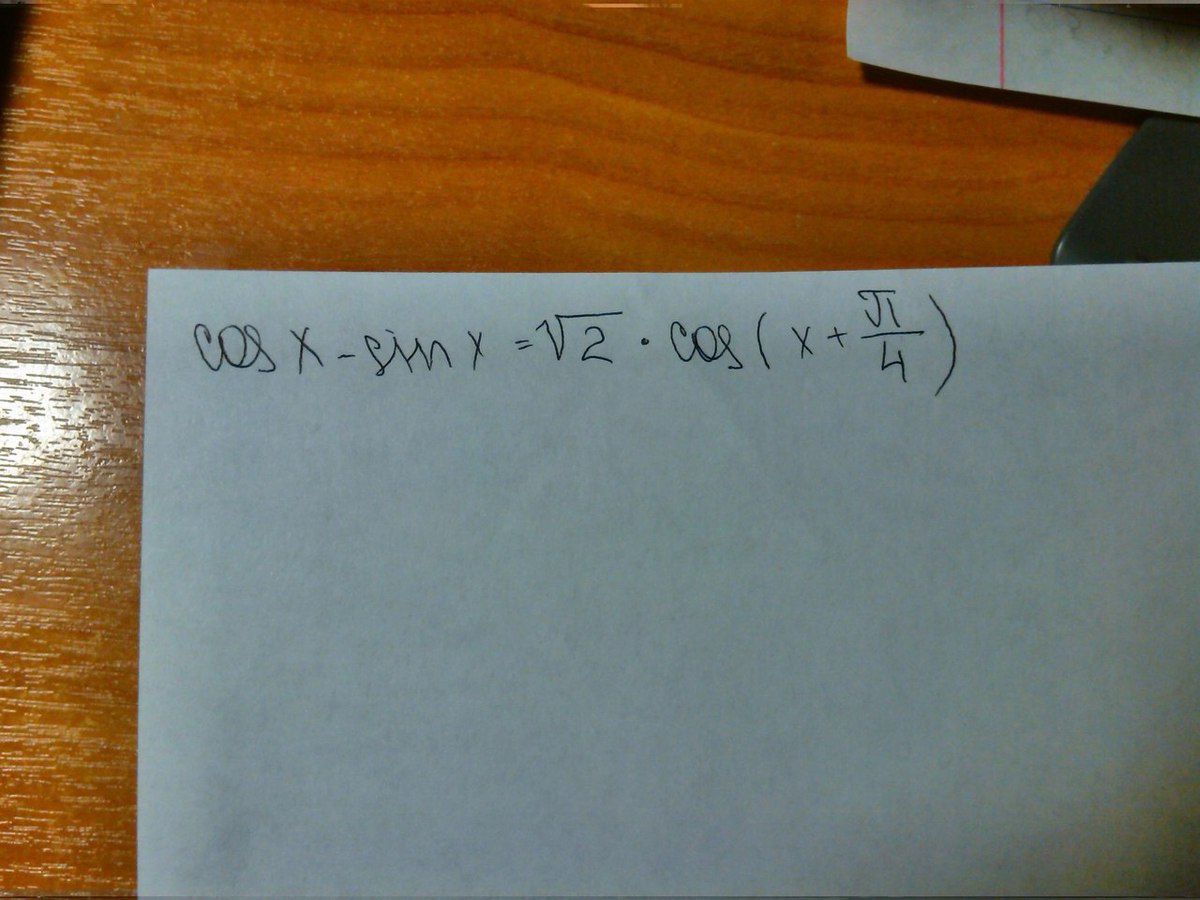 cos x - sin x = √2 · cos(x + π/4)